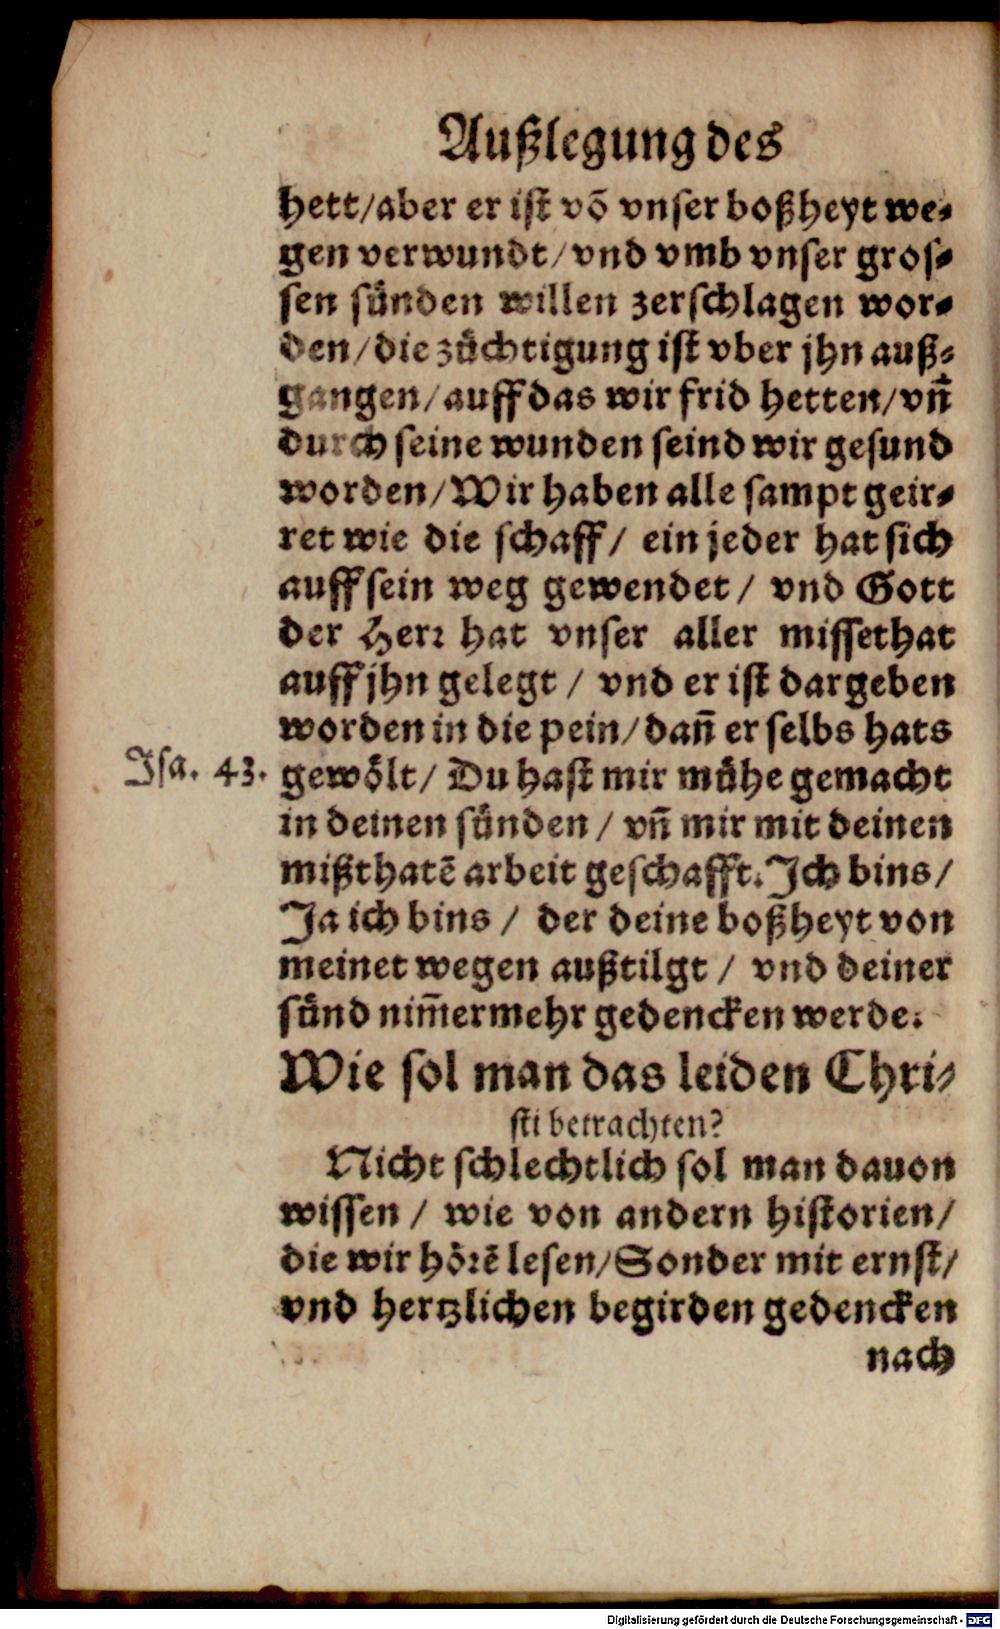 Außlegung des
hett/aber er ist võ vnser boßheyt we-
gen verwundt/vnd vmb vnser gros-
sen sünden willen zerschlagen wor-
den/die züchtigung ist vber jhn auß-
gangen/auff das wir frid hetten/vñ
durch seine wunden seind wir gesund
worden/Wir haben alle sampt geir-
ret wie die schaff/ ein jeder hat sich
auff sein weg gewendet/ vnd Gott
der Herr hat vnser aller missethat
auff jhn gelegt / vnd er ist dar geben
worden in die pein/dañ er selbs hats
Jsa. 43. gewölt/ Du hast mir mühe gemacht
in deinen sünden / vñ mir mit deinen
mißthatẽ arbeit geschafft. Ich bins/
Ja ich bins / der deine boßheyt von
meinet wegen außtilgt / vnd deiner
sünd nim̃ermehr gedencken werde.
Wie sol man das leiden Chri-
sti betrachten?
Nicht schlechtlich sol man dauon
wissen / wie von andern historien/
die wir hörẽ lesen/Sonder mit ernst/
vnd hertzlichen begirden gedencken
nach
Digitalisierung gefördert durch die Deutsche Forschungsgemeinschaft - DFG